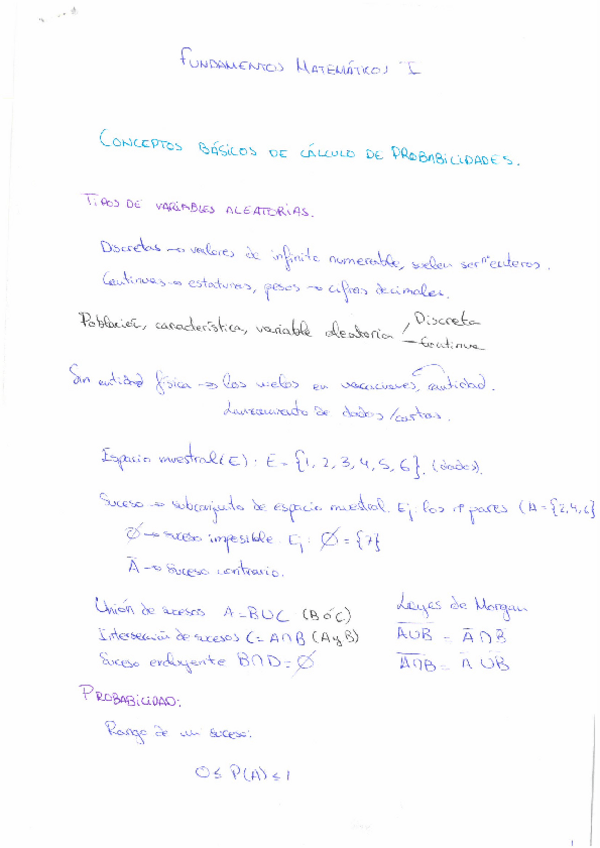 FUNDAMENTOS MATEMÁTICOS I
CONCEPTOS BÁSICOS DE CÁLCULO DE PROBABILIDADES.
TIPOS DE VARIABLES ALEATORIAS.
Discretas → valores de infinito numerable, suelen ser nº enteros.
Continuas → estaturas, pesos → cifras decimales.
Población, característica, variable aleatoria Discreta
Continua
Sin entidad física → los vuelos en vacaciones, cantidad.
Lanzamiento de dados/cartas.
Espacio muestral (E): E = {1, 2, 3, 4, 5, 6}. (dados).
Suceso → subconjunto de espacio muestral. Ej: los nº pares (A = {2,4,6}
∅ → suceso imposible. Ej: ∅ = {7}
A̅ → Suceso contrario.
Unión de sucesos A = B∪C (B ó C)
Leyes de Morgan
Intersección de sucesos C = A∩B (A y B)
A̅∪̅B̅ = A̅ ∩ B̅
Suceso excluyente B∩D = ∅
A̅∩̅B̅ = A̅ ∪ B̅
PROBABILIDAD:
Rango de un suceso:
0 ≤ P(A) ≤ 1
1